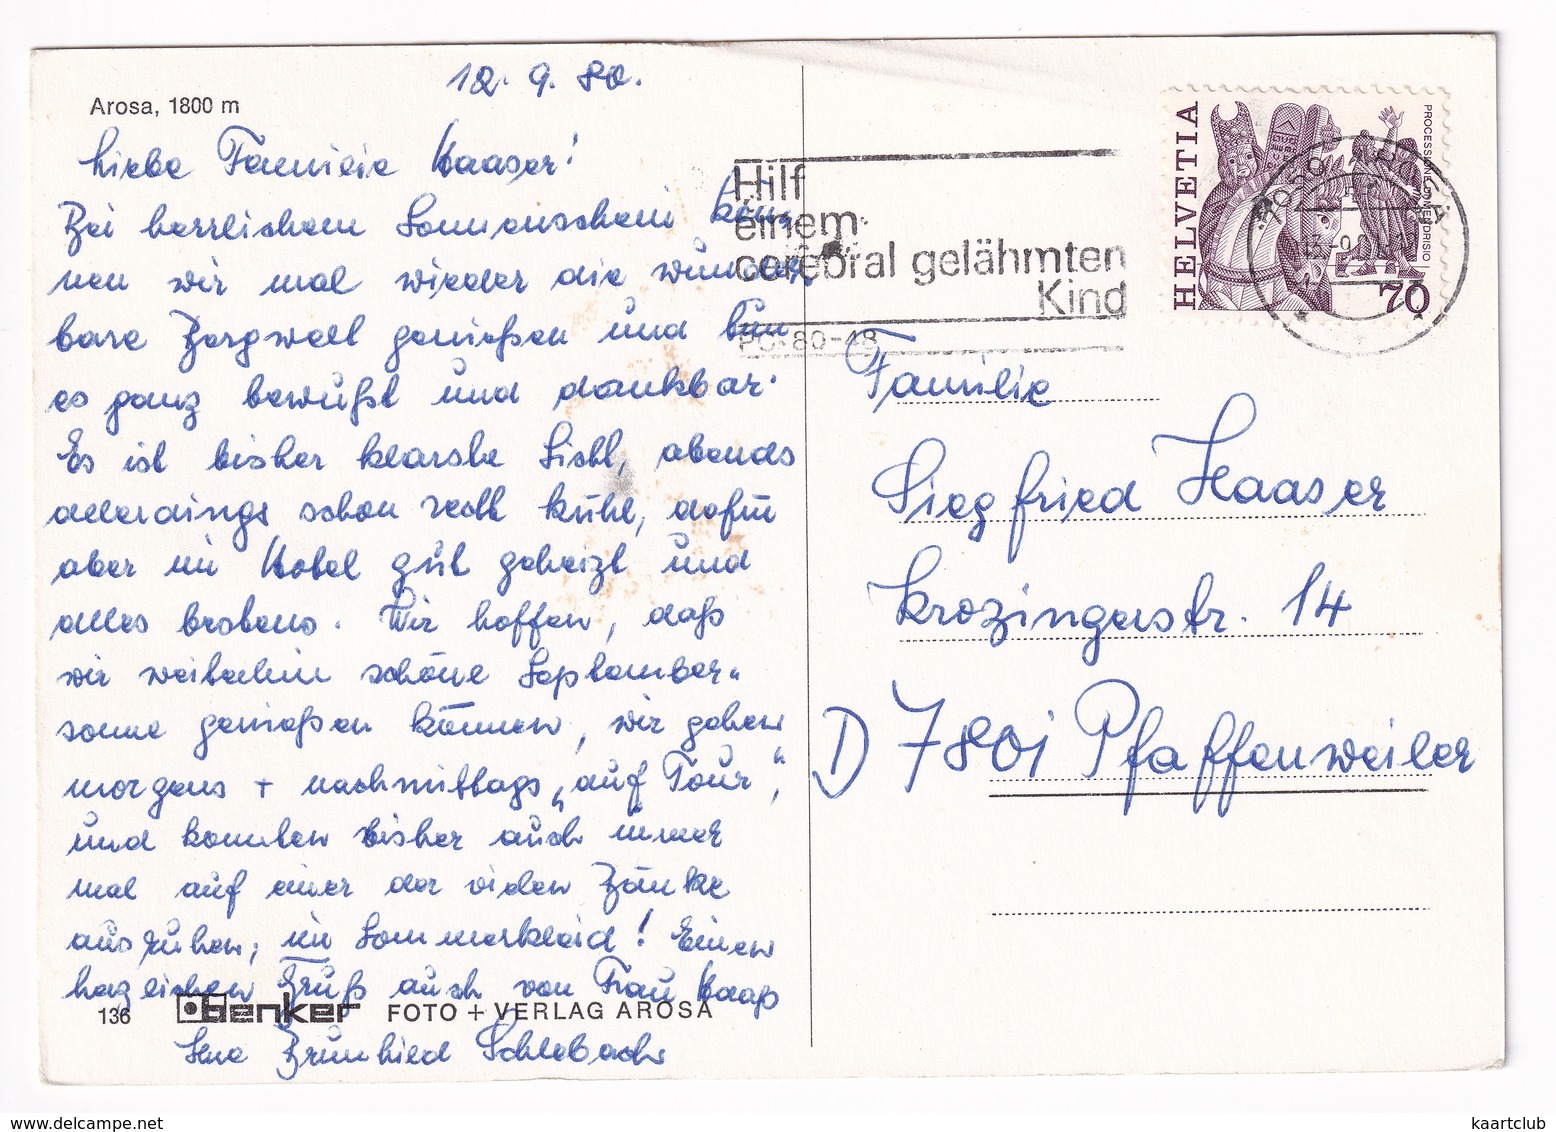 12. 9. 80.
Arosa, 1800 m
Liebe Familie Haaser!
Bei herrlichem Sonnenschein kön-
nen wir mal wieder die wunder-
bare Bergwelt genießen und tun
es ganz bewußt und dankbar.
Es ist bisher klarste Sicht, abends
allerdings schon recht kühl, dafür
aber im Hotel gut geheizt und
alles bestens. Wir hoffen, daß
wir weiterhin schöne September-
sonne genießen können, wir gehen
morgens + nachmittags „auf Tour",
und konnten bisher auch immer
mal auf einer der vielen Bänke
ausruhen, im Sommerkleid! Einen
herzlichen Gruß auch von Frau Haaß
136 benker FOTO + VERLAG AROSA
Ihre Brunhild Schlebach
Hilf
einem
cerebral gelähmten
Kind
PC-80-48
HELVETIA
PROCESSIONE MENDRISIO
70
7050 AROSA
13.-9.80
Familie
Siegfried Haaser
Krozingerstr. 14
D 7801 Pfaffenweiler
www.delcampe.net
kaartclub